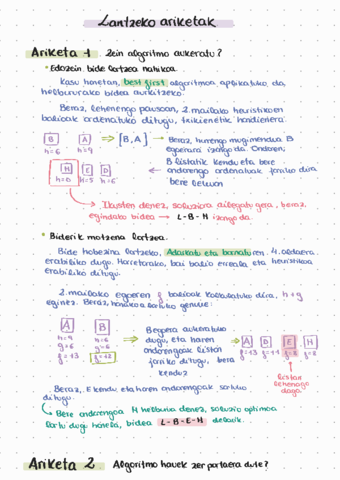 Lantzeko ariketak
Ariketa 1 Zein algoritmo aukeratu?
• Edozein bide lortzea nahikoa.
Kasu honetan, best first algoritmoa aplikatuko da,
helbururako bidea aurkitzeko.
Beraz, lehenengo pausoan, 2. mailako heuristikoen
balioak ordenatuko ditugu, txikienetik handienera:
B A ⇒ [B, A] → Beraz, hurrengo mugimendua B
h=6 h=9 egoerara izango da. Ondoren,
B listatik kendu eta bere
H E D ← ondorengo ordenatuak jarriko dira
h=0 h=5 h=6 bere lekuan
→ Ikusten denez, soluziora ailegatu gara, beraz,
egindako bidea → L-B-H izango da.
• Biderik motzena lortzea.
Bide hoberena lortzeko, Adarkatu eta bornatu-ren 4. aldaera
erabiliko dugu. Horretarako, bai bidio erreala eta heuristikoa
erabiliko ditugu.
2. mailako egoeren f balioak kalkulatuko dira, h+g
eginez. Beraz, honakoa lortuko genuke:
A B Begoera aukeratuko
h=9 h=6 dugu, eta haren → A D E H
g=6 ondorengoak listan f=13 f=11
f=13 jarriko ditugu, bera
kenduz
listan
lehenago
dago.
Beraz, E kendu eta haren ondorengoak sartuko
ditugu.
→ Bere ondorengoa H helburua denez, soluzio optimoa
lortu dugu honela, bidea L-B-E-H delarik.
Ariketa 2 Algoritmo hauek zer portaera dute?